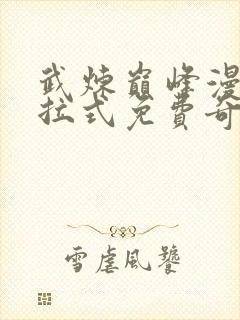 武炼巅峰漫
拉式免费奇
雪虐风饕